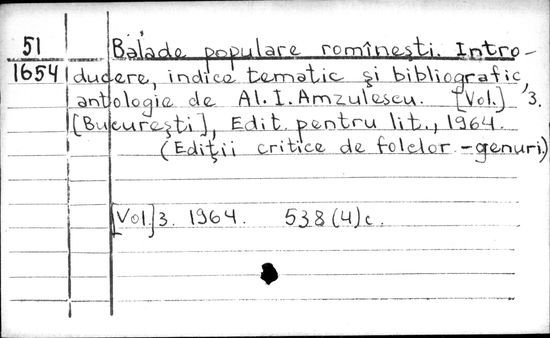 51
1654
Balade populare romîneşti. Intro-
ducere, indice tematic şi bibliografic,
antologie de Al. I. Amzulescu. [Vol.] 3.
[Bucureşti], Edit. pentru lit., 1964.
(Ediţii critice de folclor - genuri.)
[Vol.] 3. 1964. 538 (4) c.